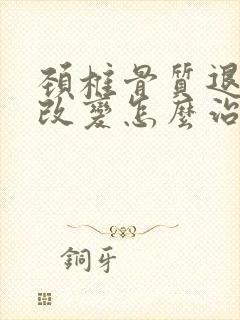 頚椎骨質退
改變怎麼治
銅牙